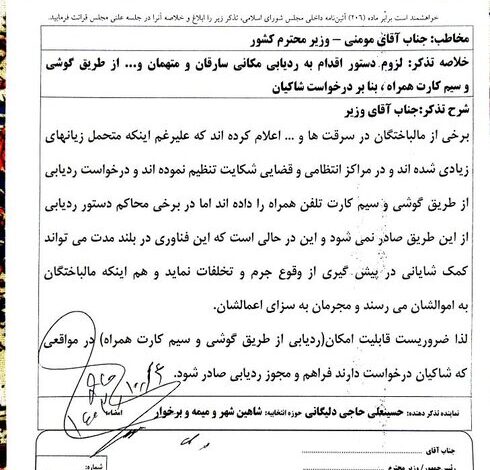 خواهشمند است برابر ماده (۲۰۶) آئین‌نامه داخلی مجلس شورای اسلامی، تذکر زیر را ابلاغ و خلاصه آنرا در جلسه علنی مجلس قرائت فرمایید.
مخاطب: جناب آقای مومنی – وزیر محترم کشور
خلاصه تذکر: لزوم دستور اقدام به ردیابی مکانی سارقان و متهمان و... از طریق گوشی
و سیم کارت همراه ، بنا بر درخواست شاکیان
شرح تذکر:جناب آقای وزیر
برخی از مالباختگان در سرقت ها و ... اعلام کرده اند که علیرغم اینکه متحمل زیانهای
زیادی شده اند و در مراکز انتظامی و قضایی شکایت تنظیم نموده اند و درخواست ردیابی
از طریق گوشی و سیم کارت تلفن همراه را داده اند اما در برخی محاکم دستور ردیابی
از این طریق صادر نمی شود و این در حالی است که این فناوری در بلند مدت می تواند
کمک شایانی در پیش گیری از وقوع جرم و تخلفات نماید و هم اینکه مالباختگان
به اموالشان می رسند و مجرمان به سزای اعمالشان.
لذا ضروریست قابلیت امکان(ردیابی از طریق گوشی و سیم کارت همراه) در مواقعی
که شاکیان درخواست دارند فراهم و مجوز ردیابی صادر شود.
نماینده تذکر دهنده: حسینعلی حاجی دلیگانی حوزه انتخابیه: شاهین شهر و میمه و برخوار امضاء
جناب آقای
رئیس‌جمهور/ وزیر محترم
شماره: